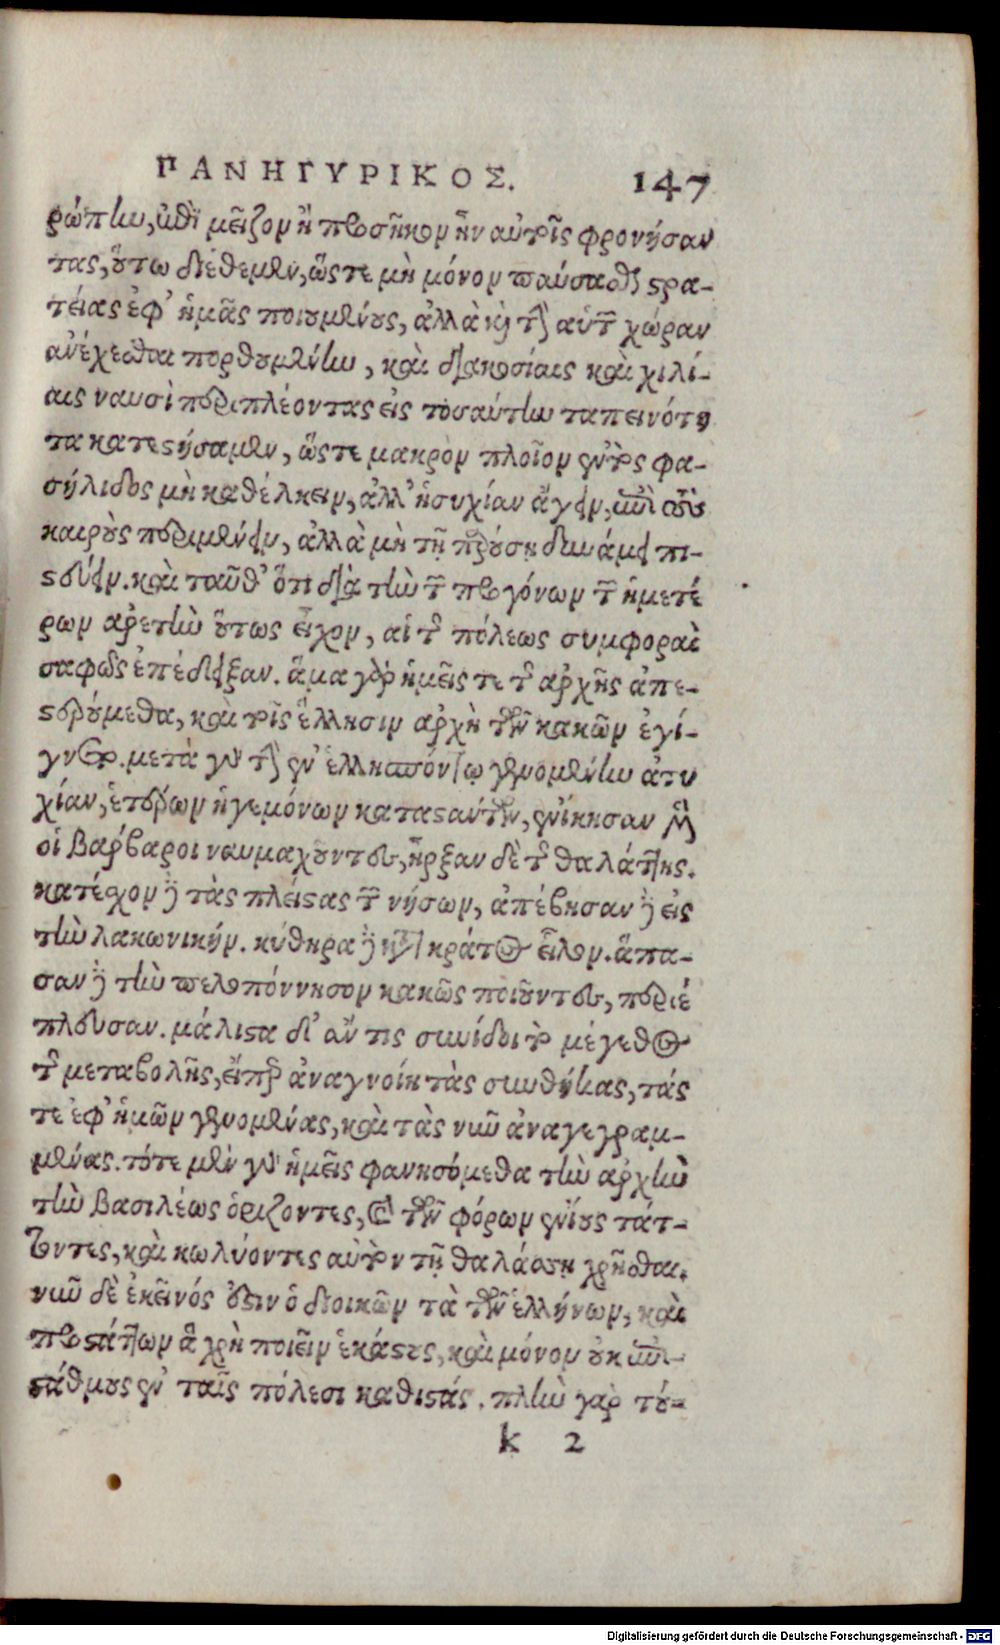 ΠΑΝΗΓΥΡΙΚΟΣ. 147
ρώπην, καὶ μεῖζον ἢ προσῆκον ἦν αὐτοῖς φρονήσαν
τας, οὕτω διέθεμεν, ὥστε μὴ μόνον παύσασθαι στρα-
τείας ἐφ' ἡμᾶς ποιουμένους, ἀλλὰ καὶ τὴν αὑτῶν χώραν
ἀνέχεσθαι πορθουμένην, καὶ διακοσίαις καὶ χιλί-
αις ναυσὶ περιπλέοντας εἰς τοσαύτην ταπεινότη
τα κατεστήσαμεν, ὥστε μακρὸν πλοῖον ἐντὸς φα-
σήλιδος μὴ καθέλκειν, ἀλλ' ἡσυχίαν ἄγειν, καὶ τοὺς
καιροὺς περιμένειν, ἀλλὰ μὴ τῇ παρούσῃ δυνάμει πι-
στεύειν. καὶ ταῦθ' ὅτι διὰ τὴν τῶν προγόνων τῶν ἡμετέ
ρων ἀρετὴν οὕτως εἶχον, αἱ τῆς πόλεως συμφοραὶ
σαφῶς ἐπέδειξαν. ἅμα γὰρ ἡμεῖς τε τῆς ἀρχῆς ἀπε-
στερούμεθα, καὶ τοῖς ἕλλησιν ἀρχὴ τῶν κακῶν ἐγί-
γνετο. μετὰ γὰρ τὴν ἐν ἑλλησπόντῳ γενομένην ἀτυ
χίαν, ἑτέρων ἡγεμόνων καταστάντων, ἐνίκησαν μὲν
οἱ βάρβαροι ναυμαχοῦντες, ἦρξαν δὲ τῆς θαλάττης.
κατέσχον δὲ τὰς πλείστας τῶν νήσων, ἀπέβησαν δὲ εἰς
τὴν λακωνικήν. κύθηρα δὲ κατὰ κράτος εἷλον. ἅπα-
σαν δὲ τὴν πελοπόννησον κακῶς ποιοῦντες, περιέ
πλευσαν. μάλιστα δ' ἄν τις συνίδοι τὸ μέγεθος
τῆς μεταβολῆς, εἴπερ ἀναγνοίη τὰς συνθήκας, τάς
τε ἐφ' ἡμῶν γενομένας, καὶ τὰς νῦν ἀναγεγραμ-
μένας. τότε μὲν γὰρ ἡμεῖς φανησόμεθα τὴν ἀρχὴν
τὴν βασιλέως ὁρίζοντες, καὶ τῶν φόρων ἐνίους τάτ-
τοντες, καὶ κωλύοντες αὐτὸν τῇ θαλάσσῃ χρῆσθαι.
νῦν δὲ ἐκεῖνός ἐστιν ὁ διοικῶν τὰ τῶν ἑλλήνων, καὶ
προστάττων ἃ χρὴ ποιεῖν ἑκάστους, καὶ μόνον οὐκ ἐπι-
στάθμους ἐν ταῖς πόλεσι καθιστάς. πλὴν γὰρ τού-
k 2
Digitalisierung gefördert durch die Deutsche Forschungsgemeinschaft - DFG